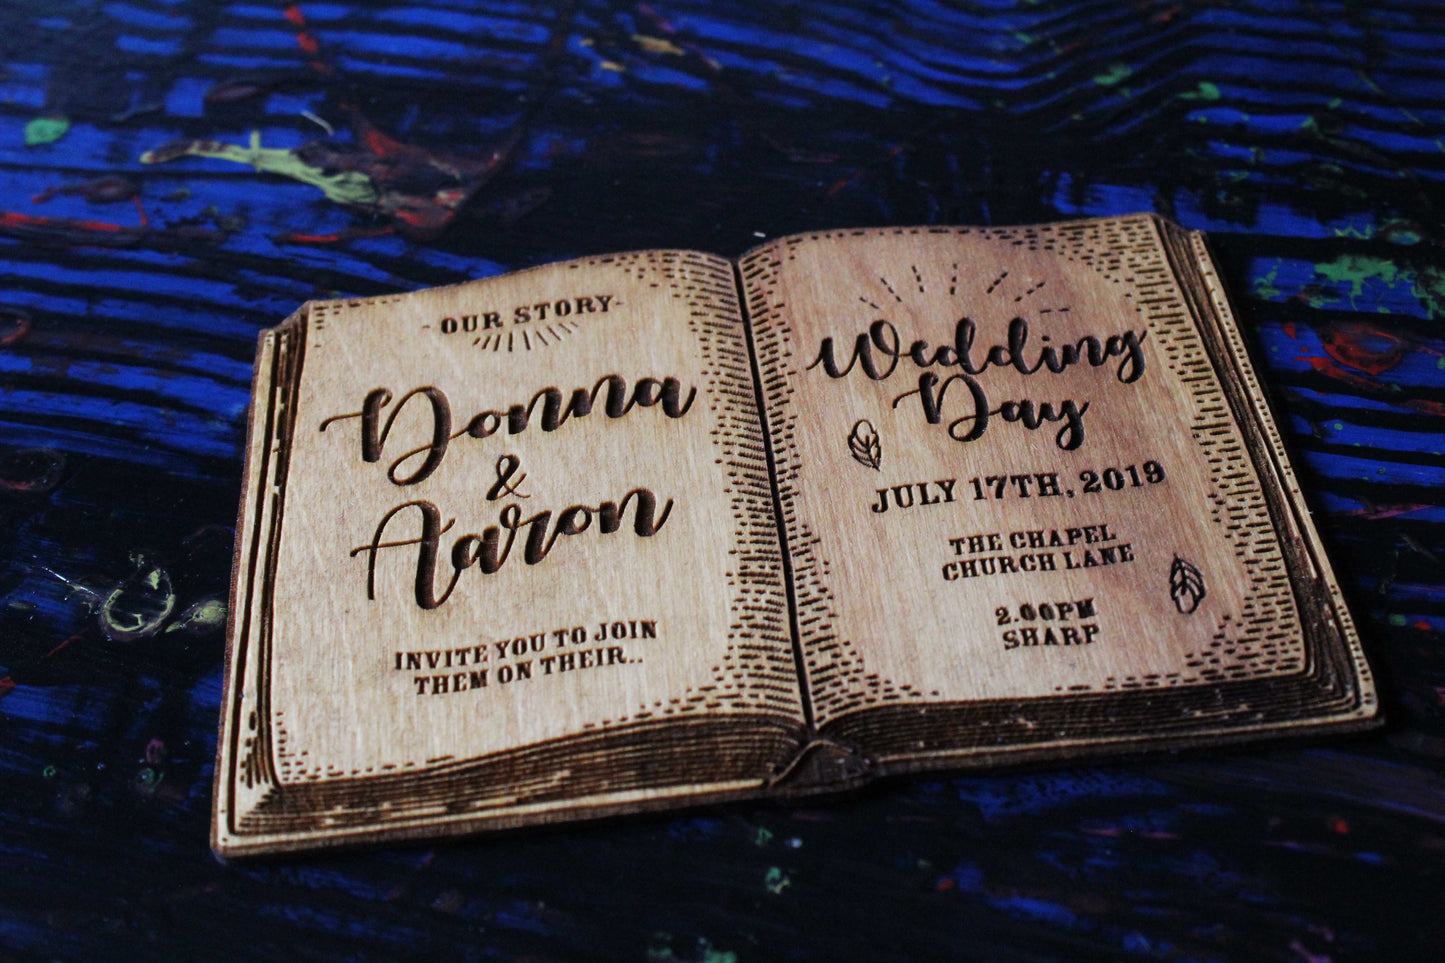 - OUR STORY -
Donna
&
Aaron
INVITE YOU TO JOIN
THEM ON THEIR..
Wedding
Day
JULY 17TH, 2019
THE CHAPEL
CHURCH LANE
2.00PM
SHARP